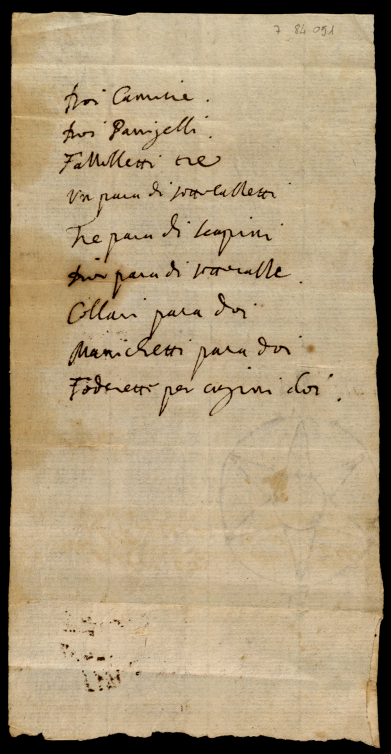 7 84 091
Doi Camise.
Doi Pannizelli.
Fazzoletti tre
Un para di sottocalzetti
Tre para di scapini
para di sottocalze.
Collari para doi
Manichetti para doi
Foderette per cuzini doi.